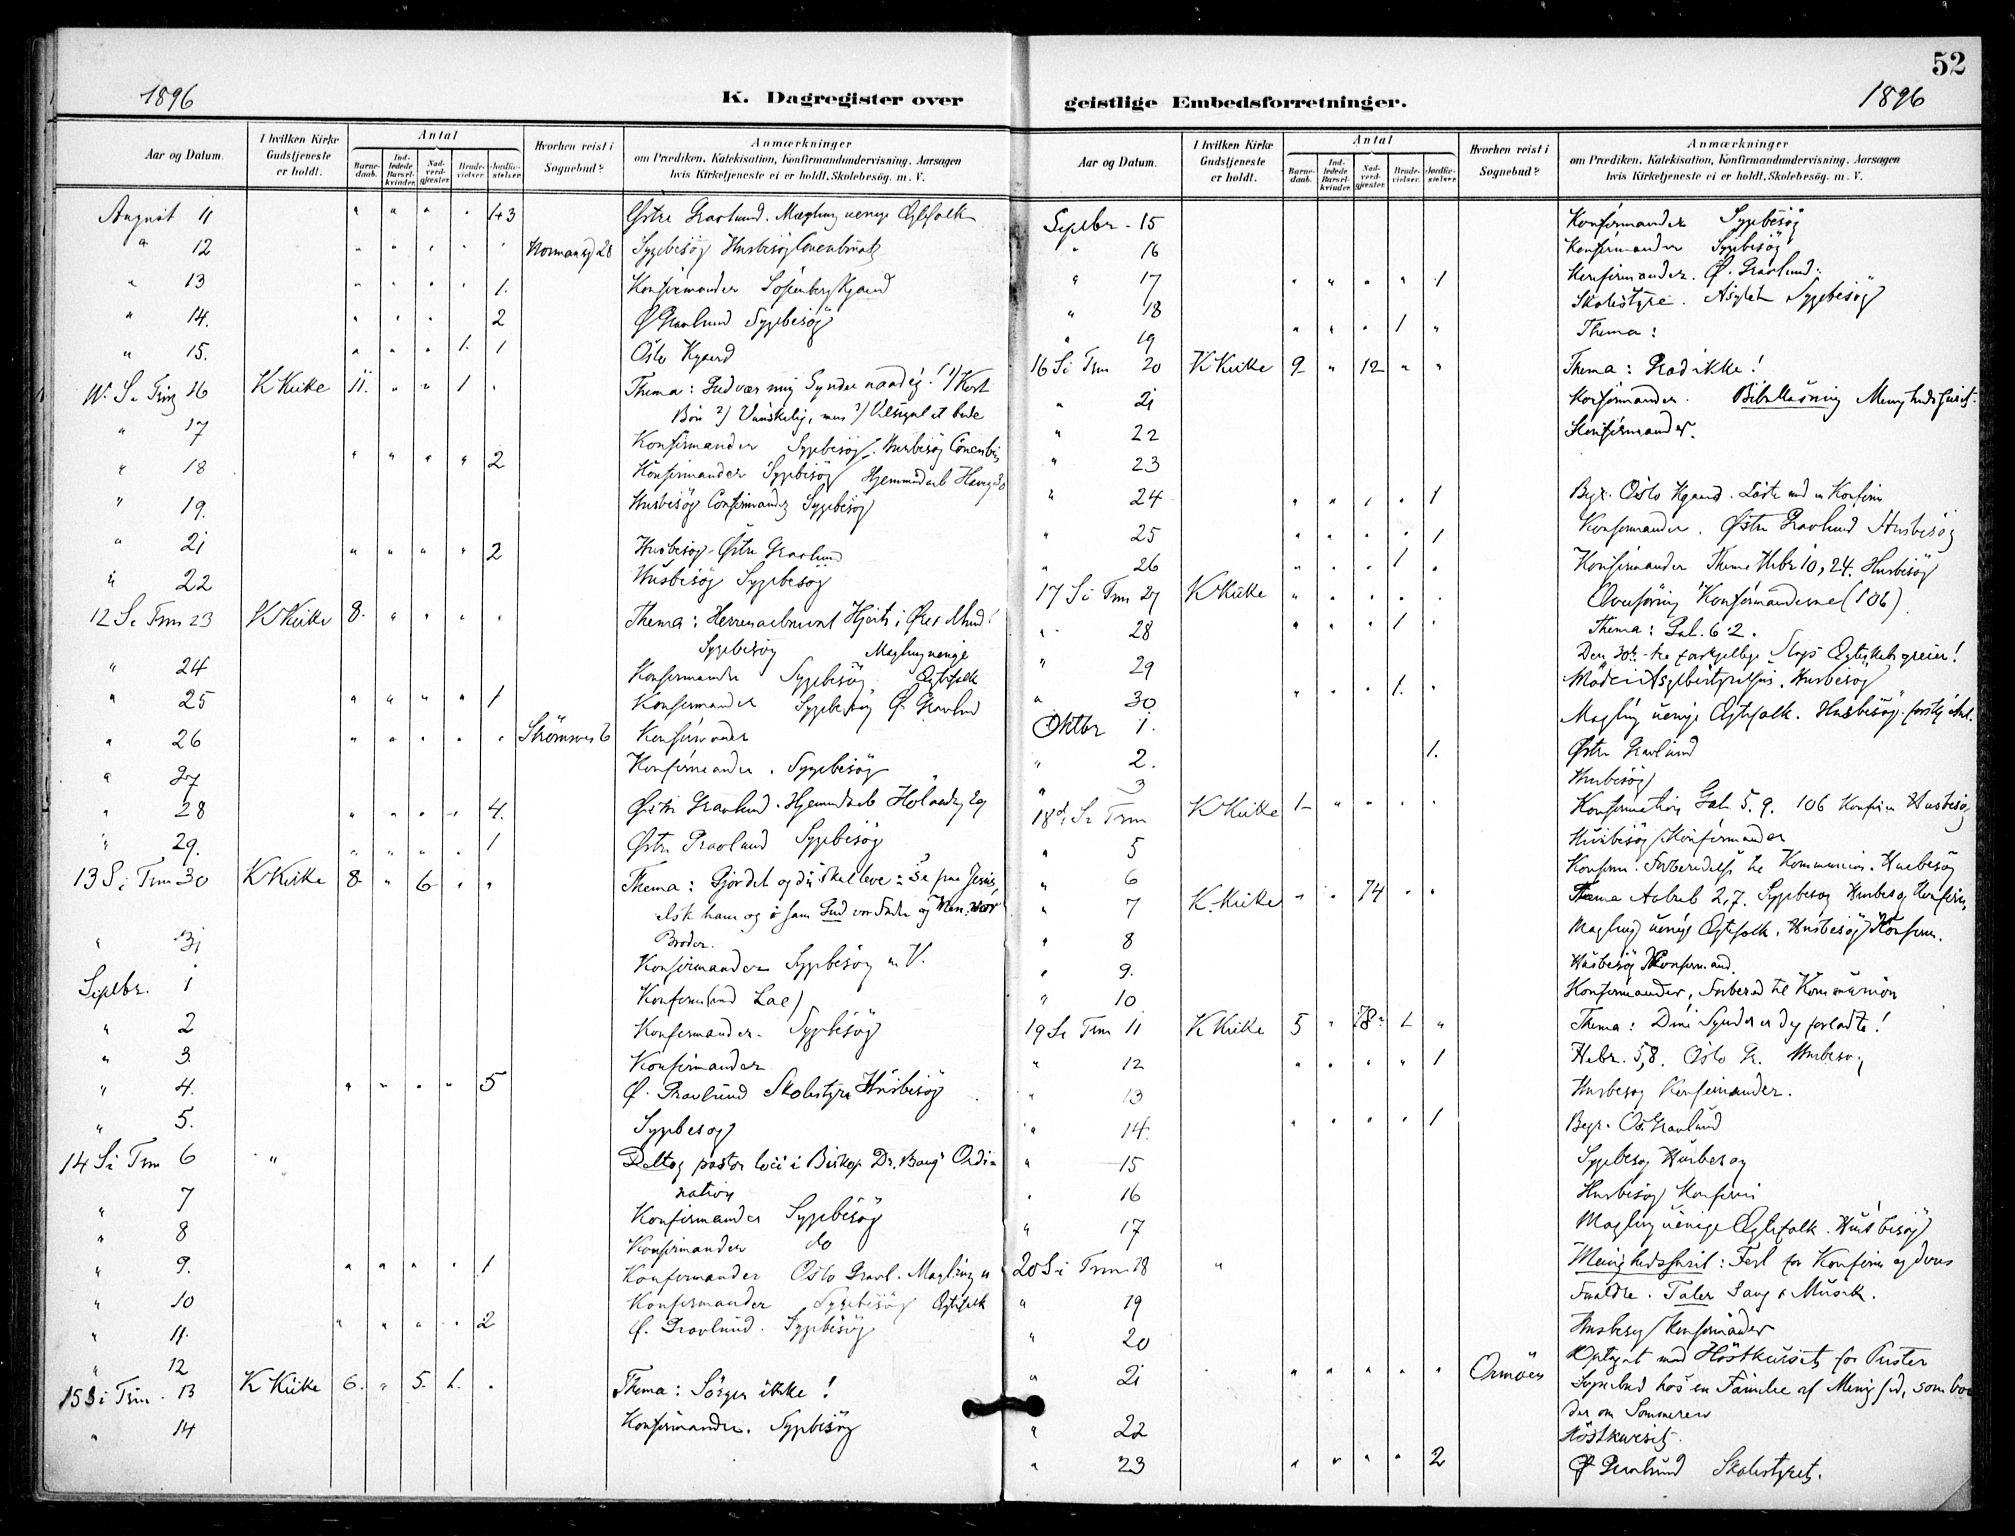 52
1896
K. Dagregister over
geistlige Embedsforretninger.
1896
Aar og Datum.
I hvilken Kirke Gudstjeneste er holdt.
Antal
Barnedaab.
Indledede Barselkvinder.
Nadverdgjæster.
Brudevielser.
Jordfæstelser.
Hvorhen reist i Sognebud?
Anmærkninger
om Prædiken, Katekisation, Konfirmandundervisning, Aarsagen
hvis Kirketjeneste ei er holdt, Skolebesøg, m. V.
August 11 " " " " 43 Østre Gravlund. Mægling uenige Ægtefolk
" 12 " " " " " Normansg 28 Sygebesög Husbesög
" 13 " " " " 1. Konfirmander Sofienberg Kgaard
" 14. " " " " 2 Ø Gravlund Sygebesög
" 15. " " " 1. 1 Oslo Kgaard
S. Trin 16 K Kirke 11. " " 1 " Thema: Gud vær mig Synder naadig! 1) Kort
Bön 2) Vanskelig, men 3) Velsignet at bede
" 17 Konfirmander Sygebesög. Husbesög
" 18 " " " " 2 Konfirmander Sygebesög Hjemmedaab
" 19. Husbesög Confirmander Sygebesög
" 21 " " " " 2 Husbesøg. Østre Gravlund
" 22 Husbesög Sygebesög
12 S. Trin 23 K Kirke 8. " " " " Thema: Herren aabner vort Hjerte, Øre & Mund!
Sygebesøg Mægling uenige
" 24 Konfirmander Sygebesög Ægtefolk
" 25 " " " " 1 Konfirmander Sygebesög Ø. Gravlund
" 26 " " " " " Strømsv 6 Konfirmander
" 27 Konfirmander. Sygebesög
" 28 " " " " 4. Østre Gravlund. Hjemmedaab
" 29. " " " " 1 Østre Gravlund Sygebesög
13 S. Trin 30 K Kirke 8 " 6 " " Thema: Gjør det og du skal leve: Se paa Jesus,
elsk ham og i ham Gud vor Fader og Men. vor
Broder.
" 31 Konfirmander Sygebesög m. V.
Septbr. 1
" 2 Konfirmander. Sygebesög
" 3. Konfirmander
" 4. " " " " 5 Ø. Gravlund Skolestyre Husbesög
" 5. Sygebesøg
14 S. Trin 6 " Deltog pastor loci i Biskop Dr. Bangs Ordi-
nation
" 7 Konfirmander Sygebesög
" 8 Konfirmander do
" 9. " " " " 1 Konfirmander Oslo Gravl. Mægling u
" 10 Konfirmander Sygebesög Ægtefolk
" 11. " " " " 2 Ø. Gravlund. Sygebesög
" 12
15 S. Trin. 13 K Kirke 6. " 5. 1. " Thema: Sörger ikke!
" 14 Konfirmander. Sygebesög
Aar og Datum.
I hvilken Kirke Gudstjeneste er holdt.
Antal
Barnedaab.
Indledede Barselkvinder.
Nadverdgjæster.
Brudevielser.
Jordfæstelser.
Hvorhen reist i Sognebud?
Anmærkninger
om Prædiken, Katekisation, Konfirmandundervisning, Aarsagen
hvis Kirketjeneste ei er holdt, Skolebesøg, m. V.
Septbr. 15 Konfirmander Sygebesög
" 16 Konfirmander Sygebesög
" 17 " " " " 1 Konfirmander. Ø. Gravlund.
" 18 Skolestyre. Asylet Sygebesög
" 19 " " " 1 " Thema:
16 S. Trin 20 K Kirke 9 " 12 " " Thema: Græd ikke!
" 21 Konfirmander. Bibellæsning Menighedshuset.
" 22 Konfirmander.
" 23
" 24 " " " " 1 Begr. Oslo Kgaard.
" 25 " " " " 1 Konfirmander. Østre Gravlund Husbesög
" 26 " " " 1 " Konfirmander Thema Hebr 10, 24. Husbesög
17 S. Trin 27 K Kirke " " " " " Overhøring Konfirmanderne (106).
" 28 " " " 1 " Thema: Gal. 6.2.
" 29 Den 30te tre forskjellige Slags Ægteskabsgreier!
" 30 " " " 1. " Möde i Asylbestyrelsen. Husbesög
Oktbr 1. Mægling uenige Ægtefolk. Husbesög
" 2. 1. Østre Gravlund
" 3 Husbesög
18de S. Trin K Kirke 1 " " " " Konfirmation Gal. 5. 9. 106 Konfirm Husbesög
" 5 Husbesög Konfirmander
" 6 Konfirm. Forberedelse til Kommunion. Husbesög
" 7 K. Kirke " " 74 " " Thema Sygebesøg Husbesøg Konfirm.
" 8 Mægling uenige Ægtefolk, Husbesög Konfirm.
" 9. Husbesög Konfirmand.
" 10 Konfirmander, Forbered til Kommunion
19 S. Trin 11 K Kirke 5 " 78 1 " Thema: Dine Synder er dig forladte!
" 12 " " " " 1 Hebr. 5,8. Oslo G. Husbesøg
" 13 Husbesøg Konfirmander.
" 14. " " " " 1 Begr. Ø. Gravlund
" 15 Sygebesög Husbesøg
" 16 Husbesög Konfirm
" 17 Mægling uenige Ægtefolk. Husbesög
20 S. Trin 18 " Menighedshuset: Fest for Konfirm og deres
" 19 Forældre. Taler Sang & Musik.
" 20 Husbesög Konfirmander
Optaget med Höstkurset for Prester
" 21 " " " " " Ormöen Sognebud hos en Familie af Menighed, som bor
der om Sommeren
" 22 Höstkurset.
" 23 " " " " 2 Ø Gravlund Skolestyret.